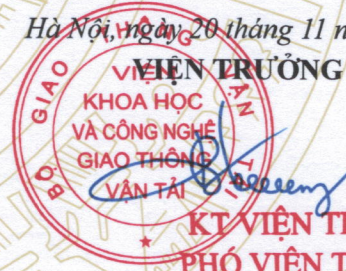 Hà Nội, ngày 20 tháng 11 n
VIỆN TRƯỞNG
BỘ GIAO THÔNG VẬN TẢI
VIỆN
KHOA HỌC
VÀ CÔNG NGHỆ
GIAO THÔNG
VẬN TẢI
KT VIỆN TR
PHÓ VIỆN T